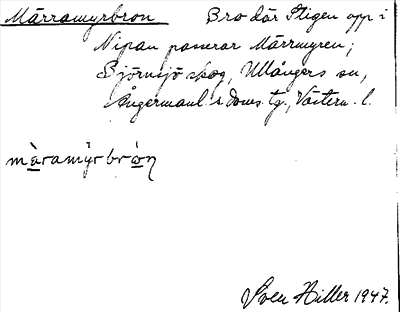 Märramyrbron Bro där Stigen upp i
Nipan passerar Märrmyren;
Björnsjö skog, Ullångers sn,
Ångermanl:s doms.tg., Västern. l.
märamy̌rbrωn
Sven Hiller 1947.